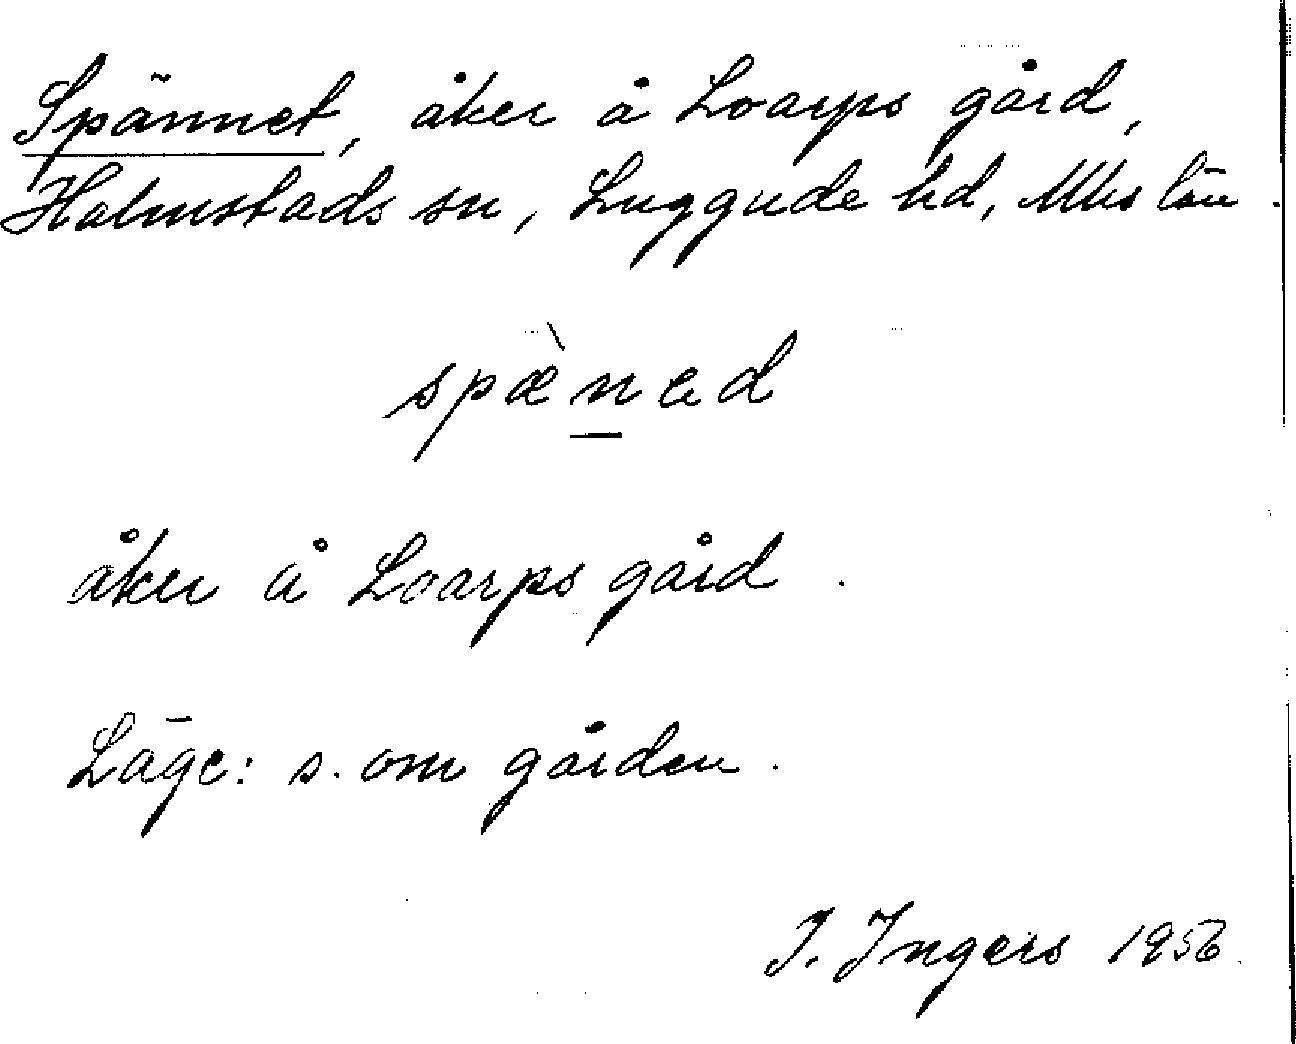 Spännet, åker å Loarps gård,
Halmstads sn, Luggude hd, Mhs län.
spæ̀ned
åker å Loarps gård.
Läge: s. om gården.
I. Ingers 1956.